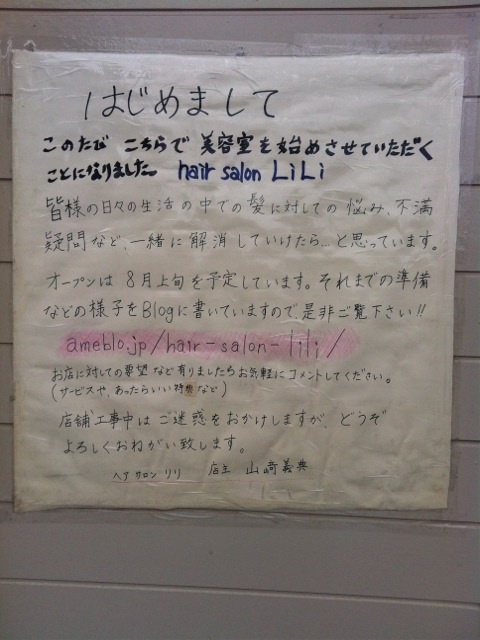 はじめまして
このたび こちらで 美容室を始めさせていただく
ことになりました。 hair salon LiLi
皆様の日々の生活の中での髪に対しての悩み、不満
疑問など、一緒に解消していけたら…と思っています。
オープンは8月上旬を予定しています。それまでの準備
などの様子をBlogに書いていますので、是非ご覧下さい!!
ameblo.jp/hair-salon-lili/
お店に対しての要望など有りましたらお気軽にコメントしてください。
(サービスや、あったらいい特典など)
店舗工事中はご迷惑をおかけしますが、どうぞ
よろしくおねがい致します。
ヘアサロン リリ 店主 山﨑義典